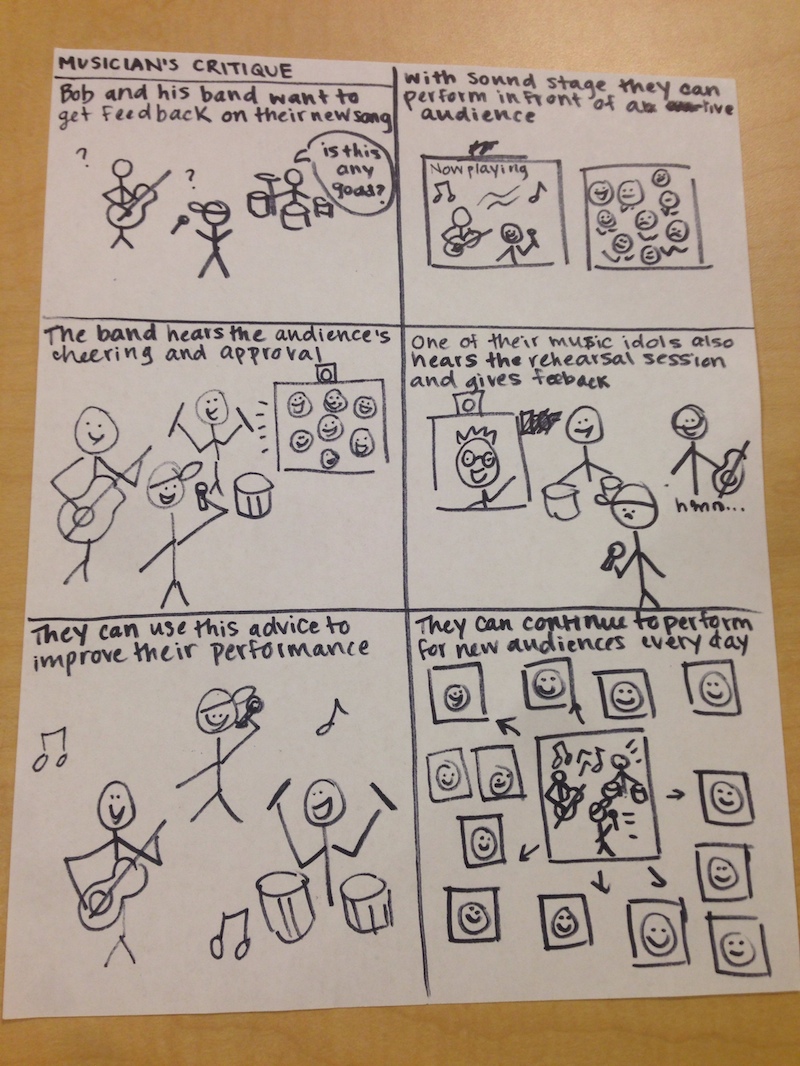 MUSICIAN'S CRITIQUE
Bob and his band want to
get feedback on their new song
?
?
is this
any
good?
with sound stage they can
perform infront of a live
audience
Now playing
The band hears the audience's
cheering and approval
One of their music idols also
hears the rehearsal session
and gives feeback
hmm...
They can use this advice to
improve their performance
They can continue to perform
for new audiences every day